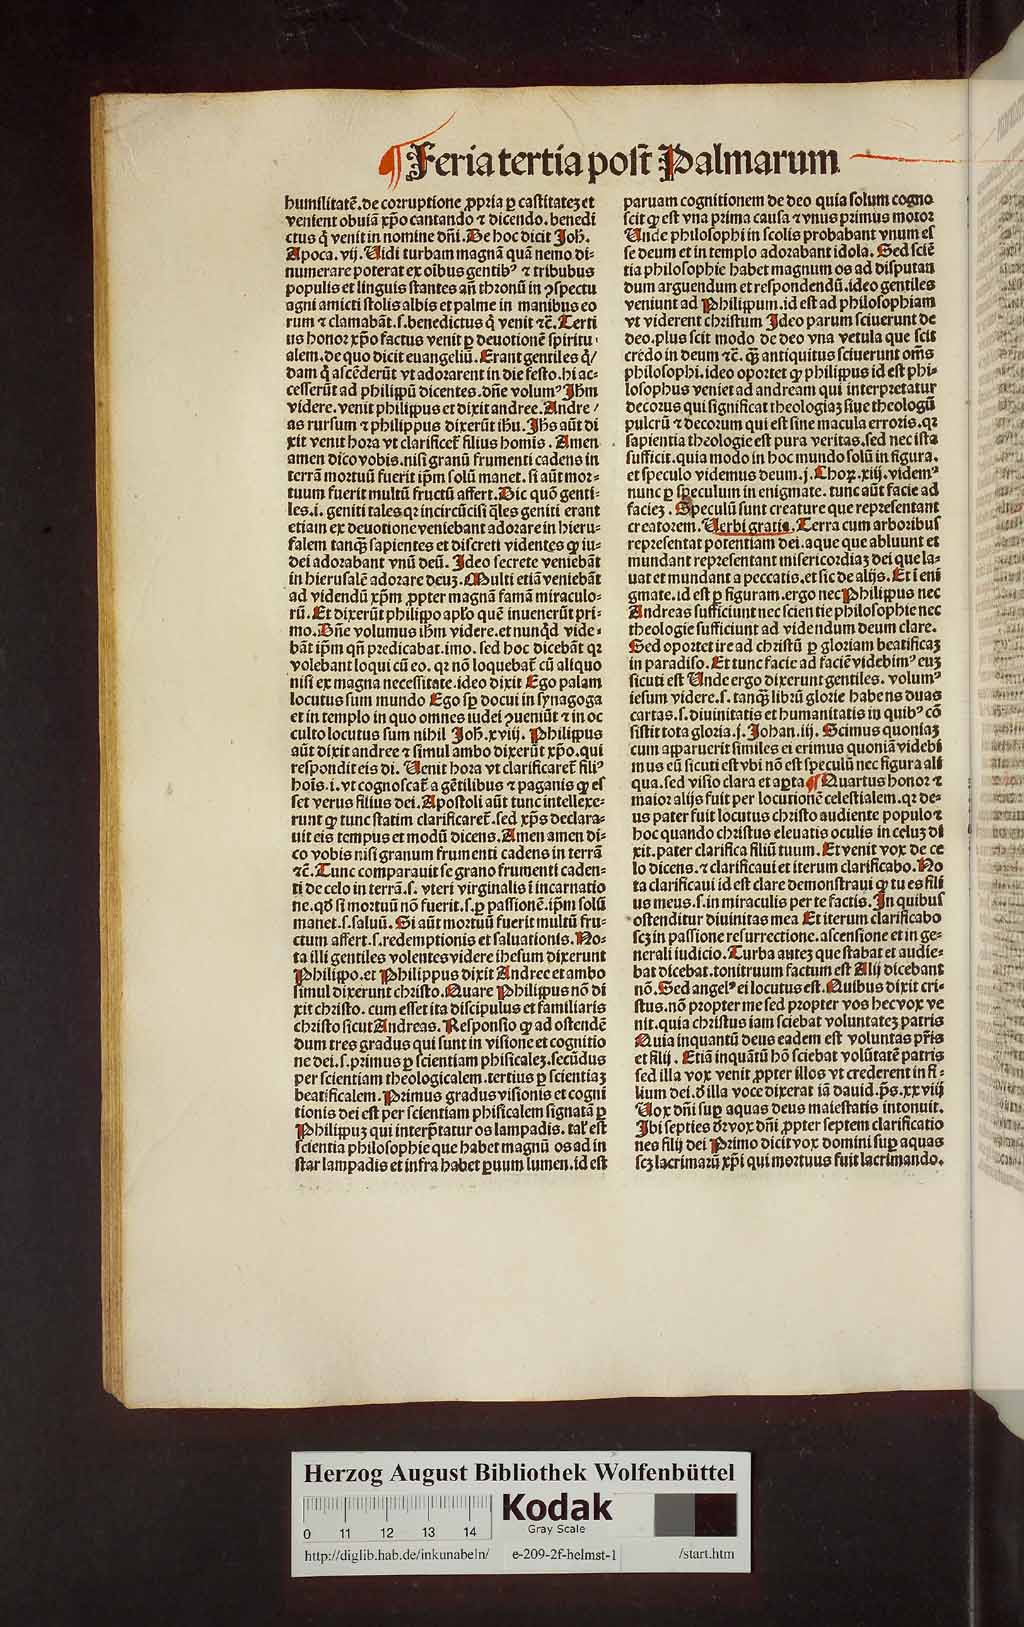 ¶ Feria tertia post Palmarum
humilitatē. de corruptione ꝓpria ꝑ castitatē et
venient obuiā xp̄o cantando ⁊ dicendo. benedi
ctus q̄ venit in nomine dn̄i. De hoc dicit Joh̄.
Apoca. vij. Uidi turbam magnā quā nemo di-
numerare poterat ex oībus gentibꝰ ⁊ tribubus
populis et linguis stantes an̄ thronū in ꝯspectu
agni amicti stolis albis et palme in manibus eo
rum ⁊ clamabāt. s. benedictus q̄ venit ⁊c̄. Terti
us honor xp̄o factus venit ꝑ deuotionē spiritu
alem. de quo dicit euangeliū. Erant gentiles q̄/
dam q̄ ascēderūt vt adorarent in die festo. hi ac-
cesserūt ad philippū dicentes. dn̄e volumꝰ Jhm̄
videre. venit philippus et dixit andree. Andre/
as rursum ⁊ philippus dixerūt ihū. Jhs aūt di
xit venit hora vt clarificet̄ filius homīs. Amen
amen dico vobis. nisi granū frumenti cadens in
terrā mortuū fuerit ip̄m solū manet. si aūt mor-
tuum fuerit multū fructū affert. Hic quō genti-
les. i. geniti tales qꝛ incircūcisi q̄les geniti erant
etiam ex deuotione veniebant adorare in hieru-
salem tanq̄ sapientes et discreti videntes ꝙ iu-
dei adorabant vnū deū. Ideo secrete veniebāt
in hierusalē adorare deuꝫ. Multi etiā veniebāt
ad videndū xp̄m ꝓpter magnā famā miraculo-
rū. Et dixerūt philippo aplo quē inuenerūt pri-
mo. Dn̄e volumus ihm̄ videre. et nunq̄d vide-
bāt ip̄m qn̄ predicabat. imo. sed hoc dicebāt qꝛ
volebant loqui cū eo. qꝛ nō loquebat̄ cū aliquo
nisi ex magna necessitate. ideo dixit Ego palam
locutus sum mundo Ego sꝑ docui in synagoga
et in templo in quo omnes iudei ꝯueniūt ⁊ in oc
culto locutus sum nihil Joh̄. xviij. Philippus
aūt dixit andree ⁊ simul ambo dixerūt xp̄o. qui
respondit eis di. Uenit hora vt clarificaret̄ filiꝰ
hoīs. i. vt cognoscat̄ a gētilibus ⁊ paganis ꝙ es
set verus filius dei. Apostoli aūt tunc intellexe-
runt ꝙ tunc statim clarificaret̄. sed xp̄s declara-
uit eis tempus et modū dicens. Amen amen di-
co vobis nisi granum frumenti cadens in terrā
⁊c̄. Tunc comparauit se grano frumenti caden-
ti de celo in terrā. s. vteri virginalis ī incarnatio
ne. qd̄ si mortuū nō fuerit. s. ꝑ passionē. ip̄m solū
manet. s. saluū. Si aūt mortuū fuerit multū fru-
ctum affert. s. redemptionis et saluationis. No-
ta illi gentiles volentes videre ihesum dixerunt
Philippo. et Philippus dixit Andree et ambo
simul dixerunt christo. Quare Philippus nō di
xit christo. cum esset ita discipulus et familiaris
christo sicut Andreas. Responsio ꝙ ad ostendē
dum tres gradus qui sunt in visione et cognitio
ne dei. s. primus ꝑ scientiam phisicalez. secūdus
per scientiam theologicalem. tertius ꝑ scientiaꝫ
beatificalem. Primus gradus visionis et cogni
tionis dei est per scientiam phisicalem signatā ꝑ
Philippuꝫ qui interp̄tatur os lampadis. tal' est
scientia philosophie que habet magnū os ad in
star lampadis et infra habet ꝑuum lumen. id est
paruam cognitionem de deo quia solum cogno
scit ꝙ est vna prima causa ⁊ vnus primus motor
Unde philosophi in scolis probabant vnum es
se deum et in templo adorabant idola. Sed sciē
tia philosophie habet magnum os ad disputan
dum arguendum et respondendū. ideo gentiles
veniunt ad Philippum. id est ad philosophiam
vt viderent christum Ideo parum sciuerunt de
deo. plus scit modo de deo vna vetula que scit
credo in deum ⁊c̄. q̄ antiquitus sciuerunt om̄s
philosophi. ideo oportet ꝙ philippus id est phi-
losophus veniet ad andream qui interpretatur
decorus qui significat theologiaꝫ siue theologū
pulcrū ⁊ decorum qui est sine macula erroris. qꝛ
sapientia theologie est pura veritas. sed nec ista
sufficit. quia modo in hoc mundo solū in figura.
et speculo videmus deum. j. Choꝝ. xiij. videmꝰ
nunc ꝑ speculum in enigmate. tunc aūt facie ad
faciez. Speculū sunt creature que representant
creatorem. Uerbi gratia. Terra cum arboribus
representat potentiam dei. aque que abluunt et
mundant representant misericordiaꝫ dei que la-
uat et mundant a peccatis. et sic de alijs. Et i eni
gmate. id est ꝑ figuram. ergo nec Philippus nec
Andreas sufficiunt nec scientie philosophie nec
theologie sufficiunt ad videndum deum clare.
Sed oportet ire ad christū ꝑ gloriam beatificaꝫ
in paradiso. Et tunc facie ad faciē videbimꝰ euꝫ
sicuti est Unde ergo dixerunt gentiles. volumꝰ
iesum videre. s. tanq̄ librū glorie habens duas
cartas. s. diuinitatis et humanitatis in quibꝰ cō
sistit tota gloria. j. Johan. iij. Scimus quoniaꝫ
cum apparuerit similes ei erimus quoniā videbi
mus eū sicuti est vbi nō est speculū nec figura ali
qua. sed visio clara et apta ¶ Quartus honor ⁊
maior alijs fuit per locutionē celestialem. qꝛ de-
us pater fuit locutus christo audiente populo ⁊
hoc quando christus eleuatis oculis in celuꝫ di
xit. pater clarifica filiū tuum. Et venit vox de ce
lo dicens. ⁊ clarificaui et iterum clarificabo. No
ta clarificaui id est clare demonstraui ꝙ tu es fili
us meus. s. in miraculis per te factis. In quibus
ostenditur diuinitas mea Et iterum clarificabo
scꝫ in passione resurrectione. ascensione et in ge-
nerali iudicio. Turba autez que stabat et audie-
bat dicebat. tonitruum factum est Alij dicebant
nō. Sed angelꝰ ei locutus est. Quibus dixit cri-
stus. nō propter me sed propter vos hec vox ve
nit. quia christus iam sciebat voluntateꝫ patris
Quia inquantū deus eadem est voluntas pr̄is
et filij. Etiā inquātū hō sciebat volūtatē patris
sed illa vox venit ꝓpter illos vt crederent in fi-
lium dei. d̄ illa voce dixerat iā dauid. ps̄. xxviij
Uox dn̄i suꝑ aquas deus maiestatis intonuit.
Ibi septies d̄r vox dn̄i ꝓpter septem clarificatio
nes filij dei Primo dicit vox domini suꝑ aquas
scꝫ lacrimarū xp̄i qui mortuus fuit lacrimando.
Herzog August Bibliothek Wolfenbüttel
Kodak
Gray Scale
0 11 12 13 14
http://diglib.hab.de/inkunabeln/ e-209-2f-helmst-1 /start.htm